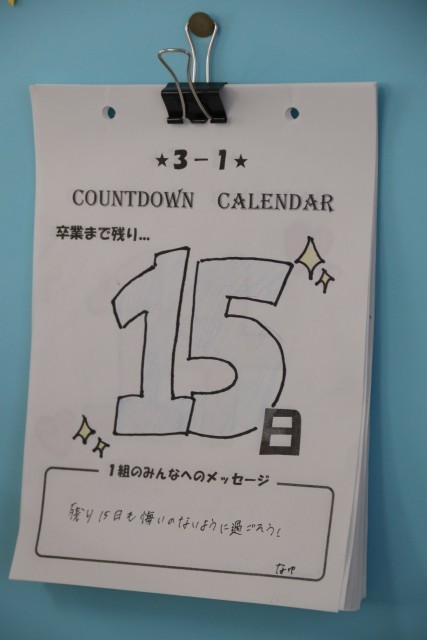 ★3-1★
COUNTDOWN CALENDAR
卒業まで残り...
15
日
1組のみんなへのメッセージ
残り15日も悔いのないように過ごそう!
なゆ